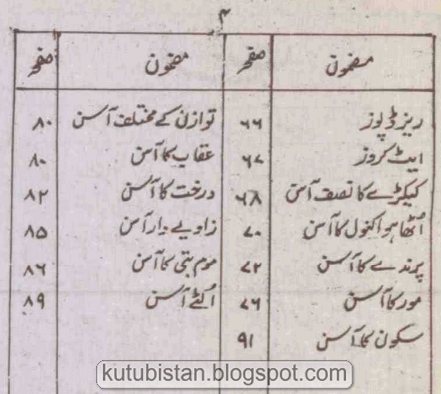 ۴
مضمون صفحہ مضمون صفحہ
ریزڈ پوز ۶۶ توازن کے مختلف آسن ۸۰
ایٹ کروز ۶۷ عقاب کا آسن ۸۰
کیکڑے کا نصف آسن ۶۸ درخت کا آسن ۸۲
اُٹھا ہوا کنول کا آسن ۷۰ زاویے دار آسن ۸۵
پرندے کا آسن ۷۲ موم بتی کا آسن ۸۶
مور کا آسن ۷۶ اُلٹے آسن ۸۹
سکون کا آسن ۹۱
kutubistan.blogspot.com